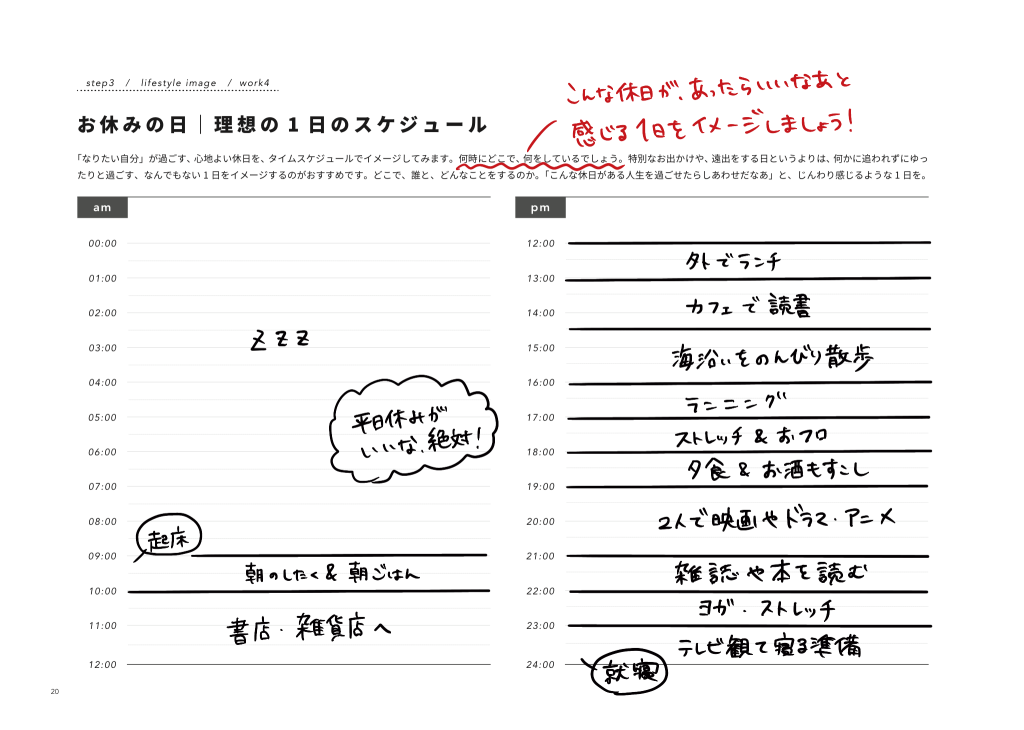 step3 / lifestyle image / work4
こんな休日が、あったらいいなあと
感じる1日をイメージしましょう!
お休みの日｜理想の1日のスケジュール
「なりたい自分」が過ごす、心地よい休日を、タイムスケジュールでイメージしてみます。何時にどこで、何をしているでしょう。特別なお出かけや、遠出をする日というよりは、何かに追われずにゆっ
たりと過ごす、なんでもない1日をイメージするのがおすすめです。どこで、誰と、どんなことをするのか。「こんな休日がある人生を過ごせたらしあわせだなあ」と、じんわり感じるような1日を。
am
00:00
01:00
02:00
zzz
03:00
04:00
平日休みが
05:00
いいな、絶対!
06:00
07:00
08:00
起床
09:00
朝のしたく & 朝ごはん
10:00
書店・雑貨店へ
11:00
12:00
pm
12:00
外でランチ
13:00
カフェで読書
14:00
15:00
海沿いをのんびり散歩
16:00
ランニング
17:00
ストレッチ & おフロ
18:00
夕食 & お酒もすこし
19:00
20:00
2人で映画やドラマ・アニメ
21:00
雑誌や本を読む
22:00
ヨガ・ストレッチ
23:00
テレビ観て寝る準備
24:00
就寝
20